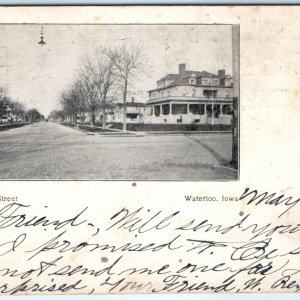 Street
Waterloo, Iowa
May
Friend-, Will send you
I promised to
not send me one for
surprised, Your Friend, W.